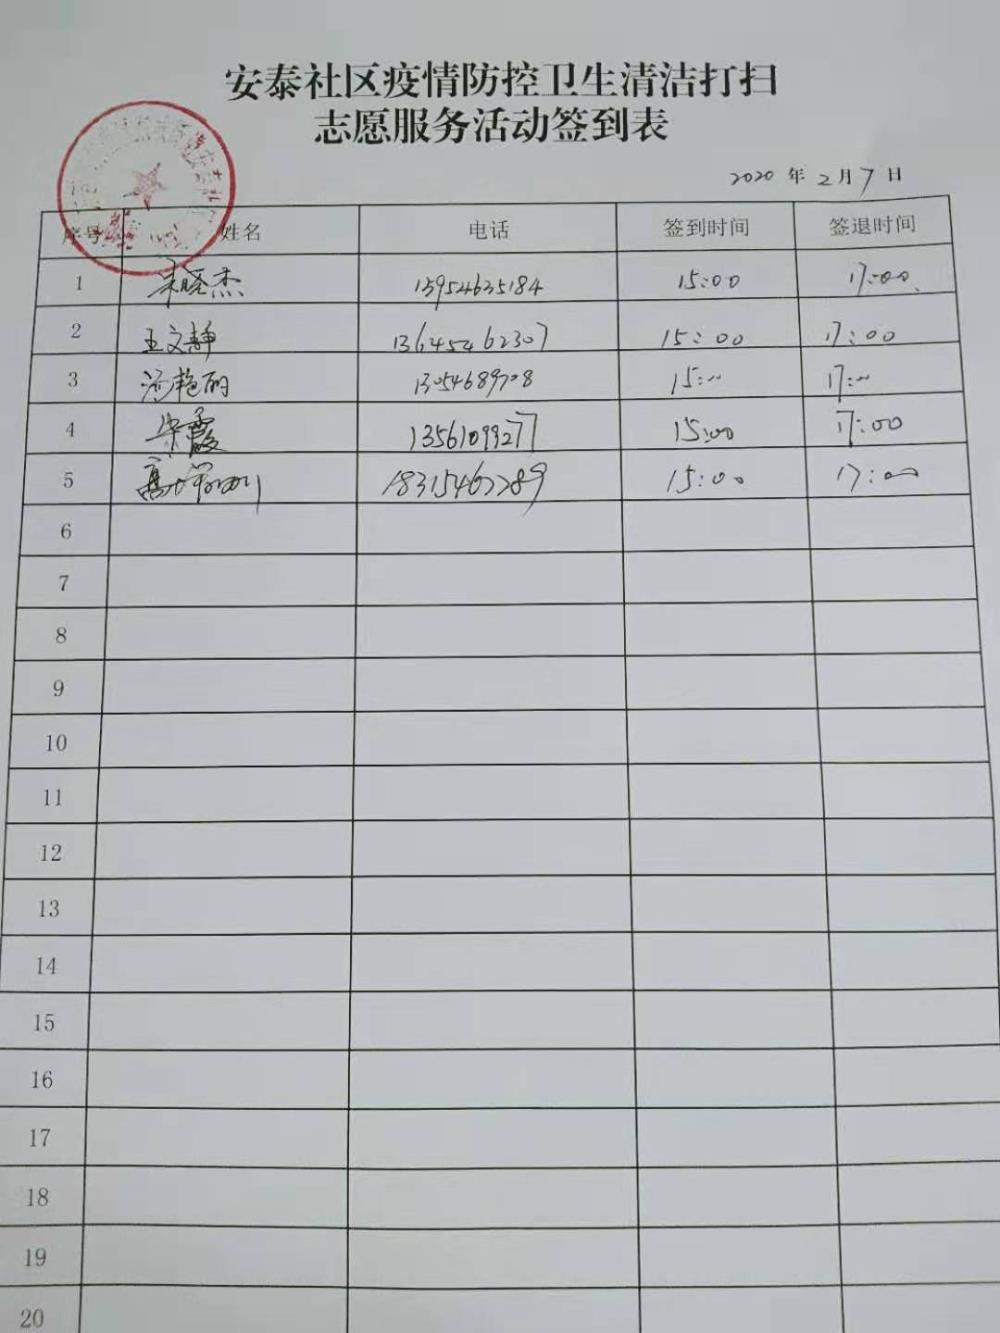 安泰社区疫情防控卫生清洁打扫
志愿服务活动签到表
2020 年 2 月 7 日
序号 姓名 电话 签到时间 签退时间
1 晓杰 15954635184 15:00 17:00
2 王文静 13645462307 15:00 17:00
3 艳丽 13054689708 15:00 17:00
4 霞 13561099277 15:00 17:00
5 高 15:00 17:00
6
7
8
9
10
11
12
13
14
15
16
17
18
19
20